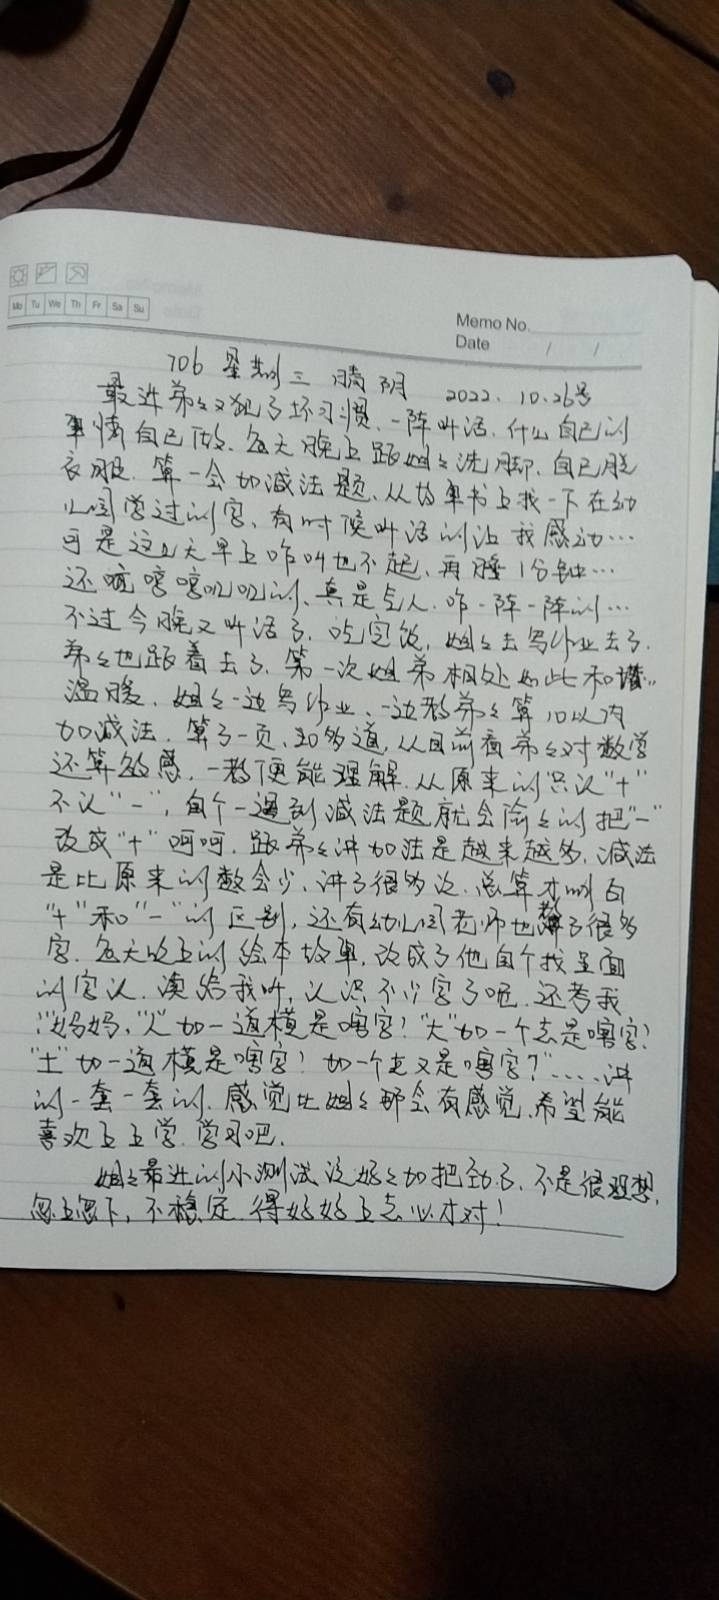 Mo Tu We Th Fr Sa Su
Memo No.
Date / /
706 星期三 晴阴 2022.10.26号
最近弟弟又犯了坏习惯、一阵叫活、什么自己的
事情自己做、每天晚上跟姐姐洗脚、自己脱
衣服、算一会加减法题、从故事书上找一下在幼
儿园学过的字、有时候叫活的让我感动…
可是这几天早上咋叫也不起、再睡1分钟…
还哼哼吱吱的、真是气人、咋一阵一阵的…
不过今晚又叫活了、吃完饭、姐姐去写作业去了、
弟弟也跟着去了、第一次姐弟相处如此和谐..
温暖、姐姐一边写作业、一边教弟弟算10以内
加减法、算了一页、30多道、从目前看弟弟对数学
还算敏感、一教便能理解、从原来的只认"+"
不认"-"，自个一遇到减法题就会偷偷的把"-"
改成"+"呵呵、跟弟弟讲加法是越来越多、减法
是比原来的数会少、讲了很多次、总算才明白
"+"和"-"的区别，还有幼儿园老师也教了很多
字、每天晚上的绘本故事、改成了他自个找里面
的字认、读给我听、认识不少字了呢、还考我
:"妈妈、"人"加一道横是啥字？"大"加一个去是啥字？
"土"加一道横是啥字？加一个走又是啥字？".....讲
的一套一套的、感觉比姐姐那会有感觉、希望能
喜欢上上学、学习吧、
姐姐最近的小测试没好好加把劲了、不是很理想、
忽上忽下、不稳定、得好好上点心才对！